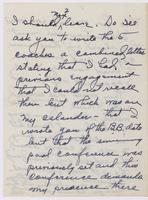 I should not leave. So Dee
ask you to write the 5
coaches a combined letter
stating that I had a
previous engagement
that I could not recall
then but which was on
my calendar - that I
wrote you of the B.B. date
but that the swimming
pool conference was
previously set and this
conference demands
my presence there